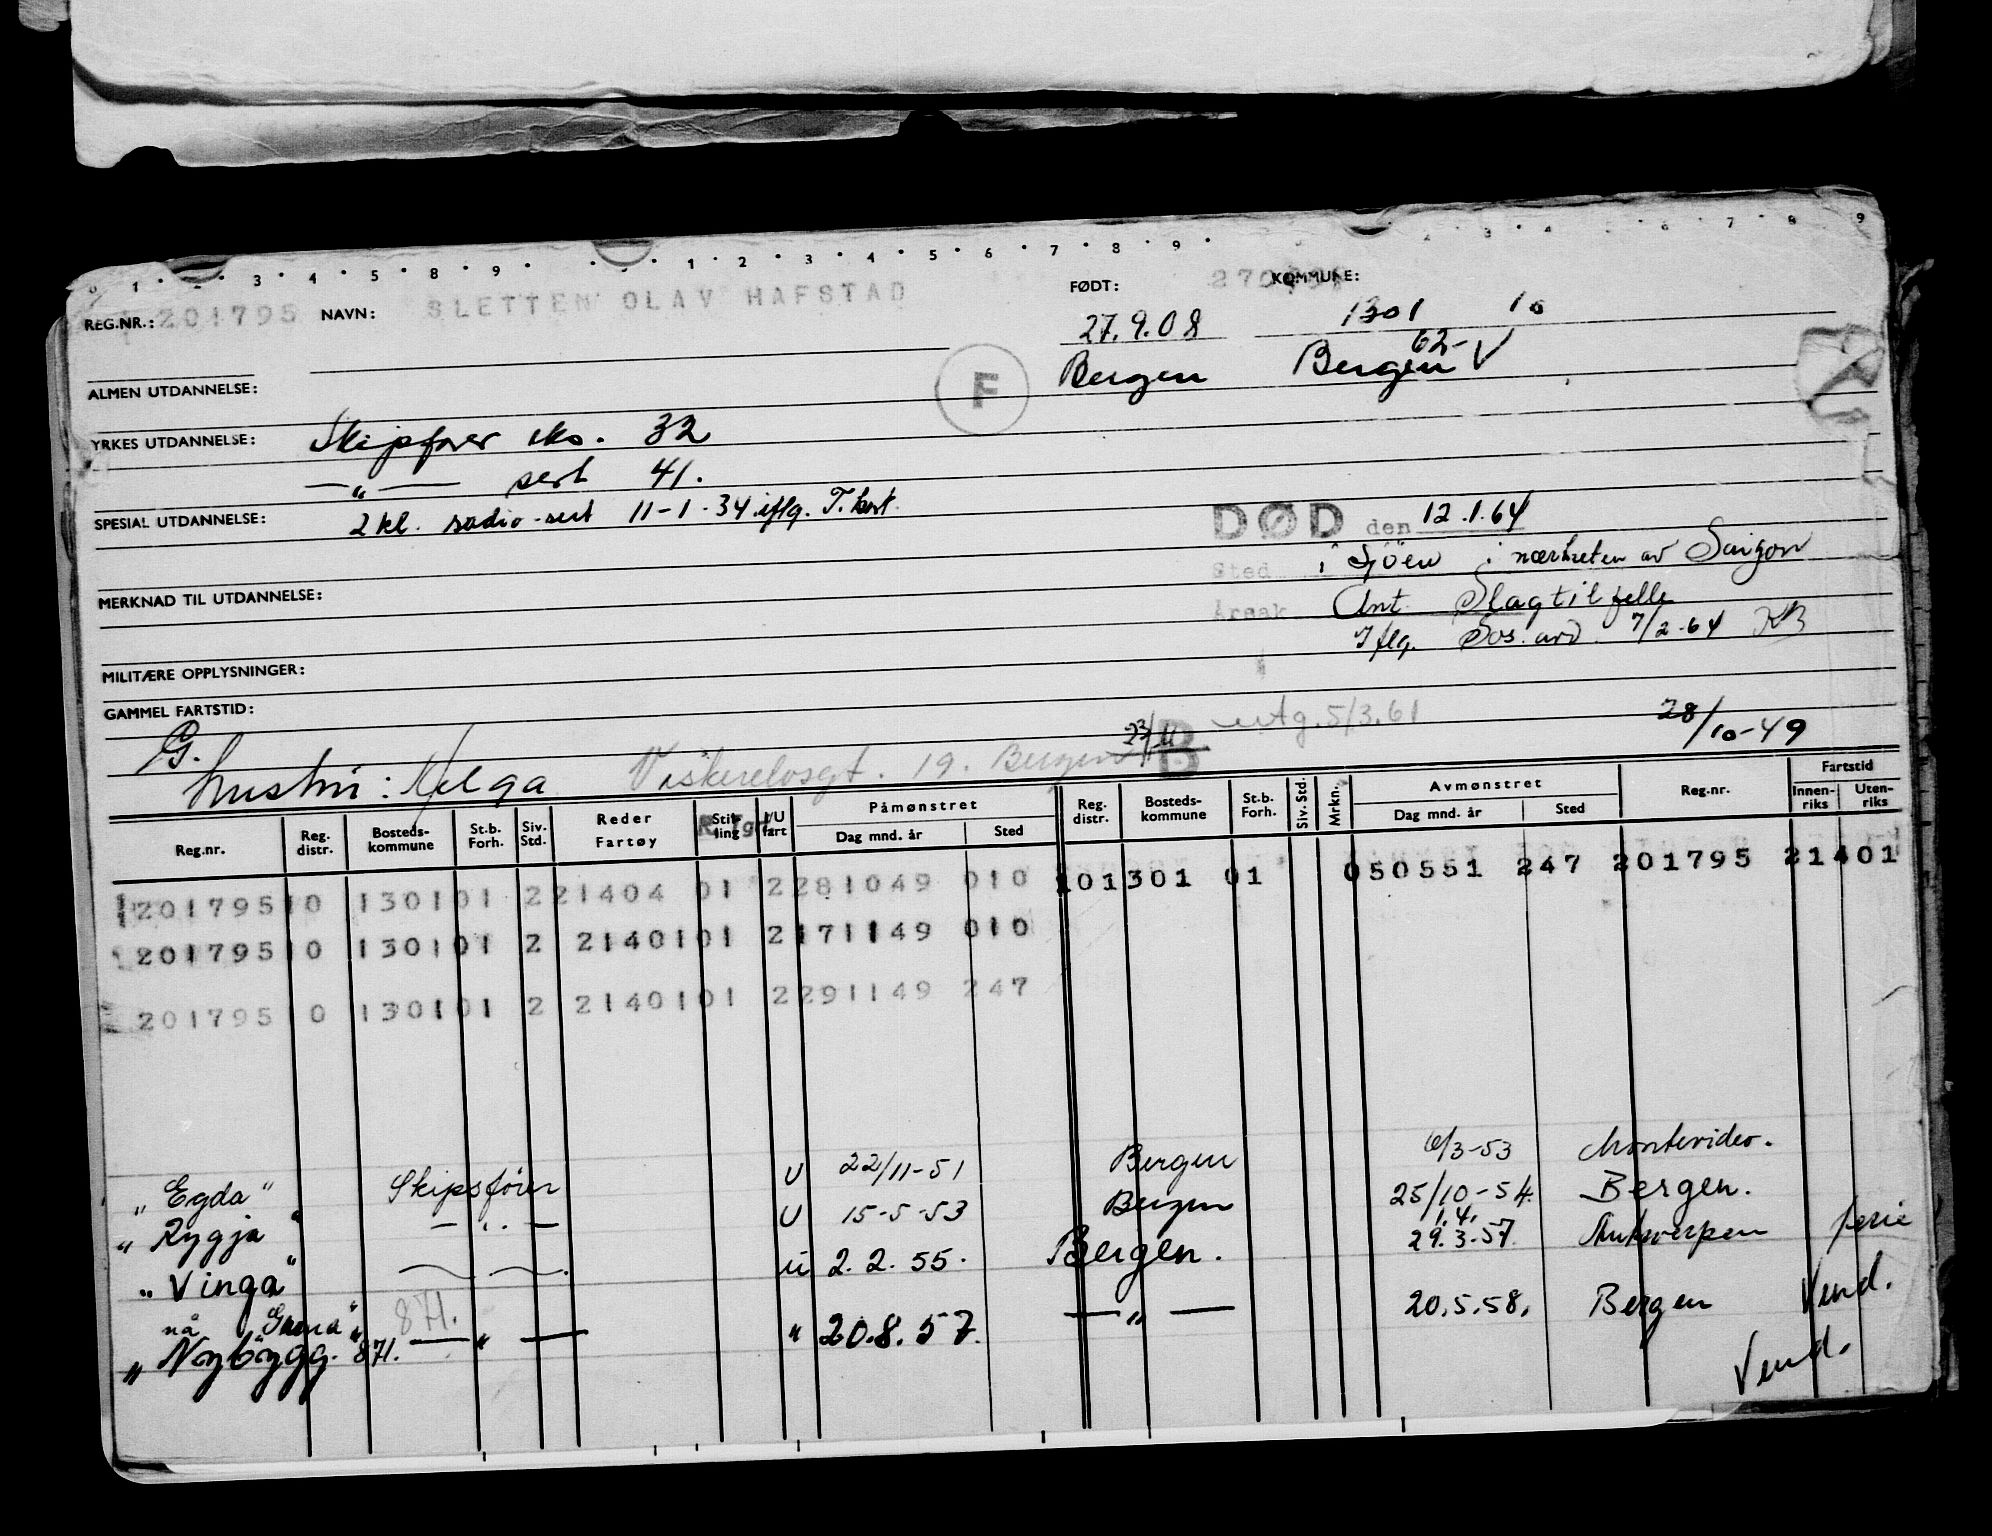 0 1 2 3 4 5 8 9 1 2 3 4 5 6 7 8 9 2 3 4 6 7 8 9
REG.NR.: 201795 NAVN: SLETTEN OLAV HAFSTAD FØDT: KOMMUNE:
27.9.08 1301 10
Bergen Bergen 62- V
F
ALMEN UTDANNELSE:
YRKES UTDANNELSE: Skipsfører eks. 32
—"— sert 41.
SPESIAL UTDANNELSE: 2 kl. radio-sert 11-1-34 iflg. T. kort.
DØD den 12.1.64
Sted i Sjöen i nærheten av Saigon
MERKNAD TIL UTDANNELSE:
Årsak Ant. Slagtilfelle
Iflg. Sos. avd. 7/2-64
MILITÆRE OPPLYSNINGER:
GAMMEL FARTSTID:
G. 23/11 B utg. 5/3.61 28/10-49
hustru: Helga 19. Bergen
Reg.nr. Reg. distr. Bosteds- kommune St.b. Forh. Siv. Std. Reder Fartøy Stil- ling I/U fart Påmønstret Dag mnd. år Sted Reg. distr. Bosteds- kommune St.b. Forh. Siv. Std. Mrkn. Avmønstret Dag mnd. år Sted Reg.nr. Fartstid Innen- riks Uten- riks
201795 10 1301 01 2 21404 01 2 281049 010 101301 01 050551 247 201795 21401
201795 10 1301 01 2 21401 01 2 171149 010
201795 10 1301 01 2 21401 01 2 291149 247
"Egda" Skipsfører U 22/11-51 Bergen 6/3-53 Montevideo.
"Rygja" —"— U 15-5-53 Bergen 25/10-54. Bergen.
1.4.
"Vinga" —"— U 2.2.55. Bergen. 29.3.57. Antwerpen ferie
nå 871.
"Nybygg. 871. —"— " 20.8.57. —"— 20.5.58. Bergen Vend.
Vend.